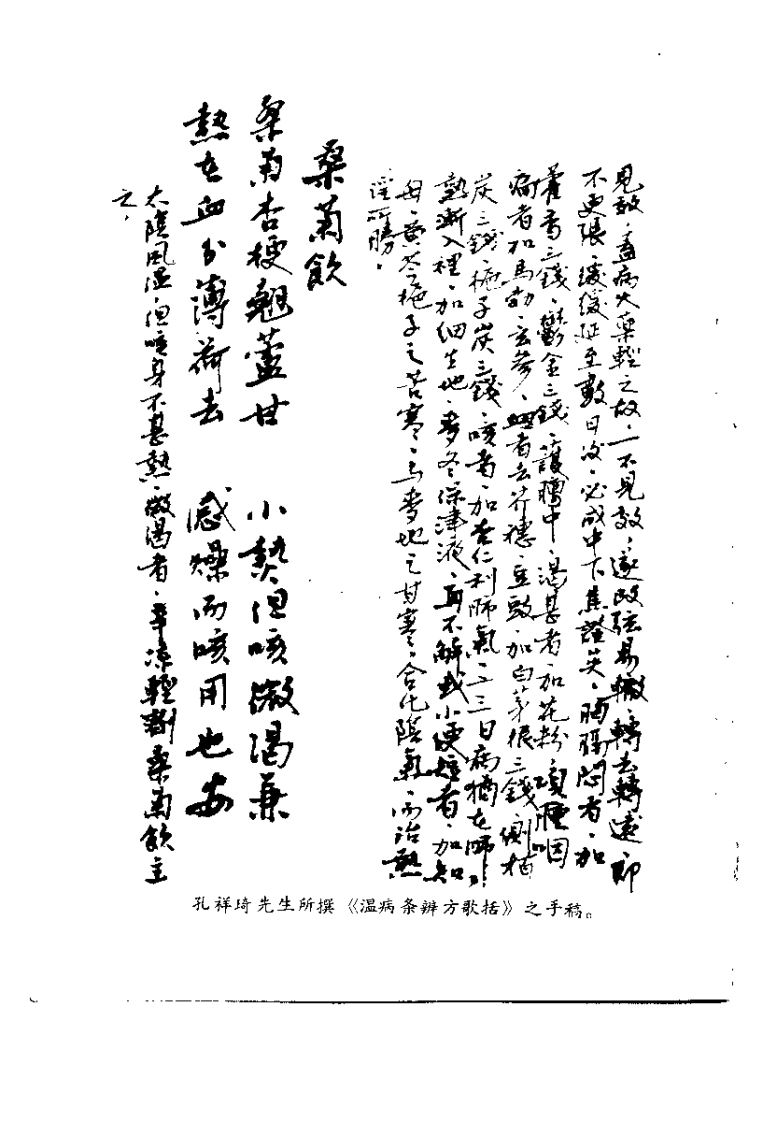 見效，蓋病大藥輕之故，一不見效，遂改弦易轍，轉去轉遠，即
不更張，緩緩延至數日後，必成中下焦證矣，胸膈悶者，加
藿香三錢、鬱金三錢，護膻中，渴甚者，加花粉，項腫咽
痛者加馬勃、玄參，衄者去芥穗、豆豉，加白茅根三錢，側柏
炭三錢，梔子炭三錢，咳者，加杏仁利肺氣，二三日病猶在肺，
熱漸入裡，加細生地、麥冬保津液，再不解或小便短者，加知
母、黃芩、梔子之苦寒，与麥地之甘寒，合化陰氣，而治熱
淫所勝。
桑菊飲
桑菊杏梗翹蘆甘 小熱但咳微渴兼
熱在血分薄荷去 感燥而咳用也安
太陰風溫，但咳身不甚熱，微渴者，辛凉輕劑桑菊飲主
之，
孔祥琦先生所撰《溫病条辨方歌括》之手稿。